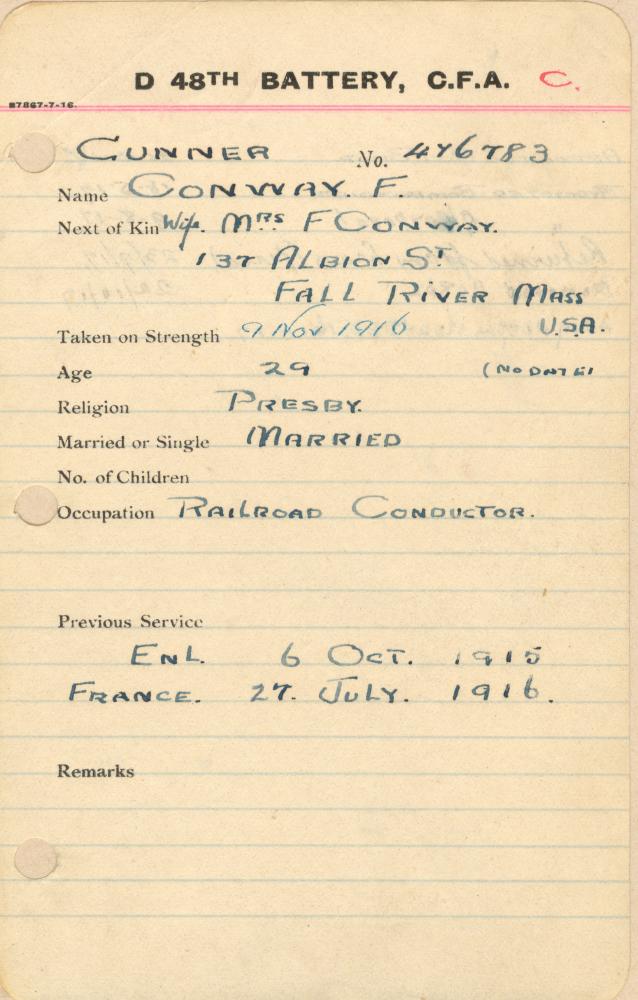 D 48TH BATTERY, C.F.A. C.
87867-7-16.
GUNNER No. 476783
Name CONWAY. F.
Next of Kin Wife. MRS F CONWAY.
137 ALBION ST
FALL RIVER MASS
U.S.A.
Taken on Strength 9 Nov 1916
Age 29 (NO DATE)
Religion PRESBY.
Married or Single MARRIED
No. of Children
Occupation RAILROAD CONDUCTOR.
Previous Service
ENL. 6 OCT. 1915
FRANCE. 27. JULY. 1916.
Remarks